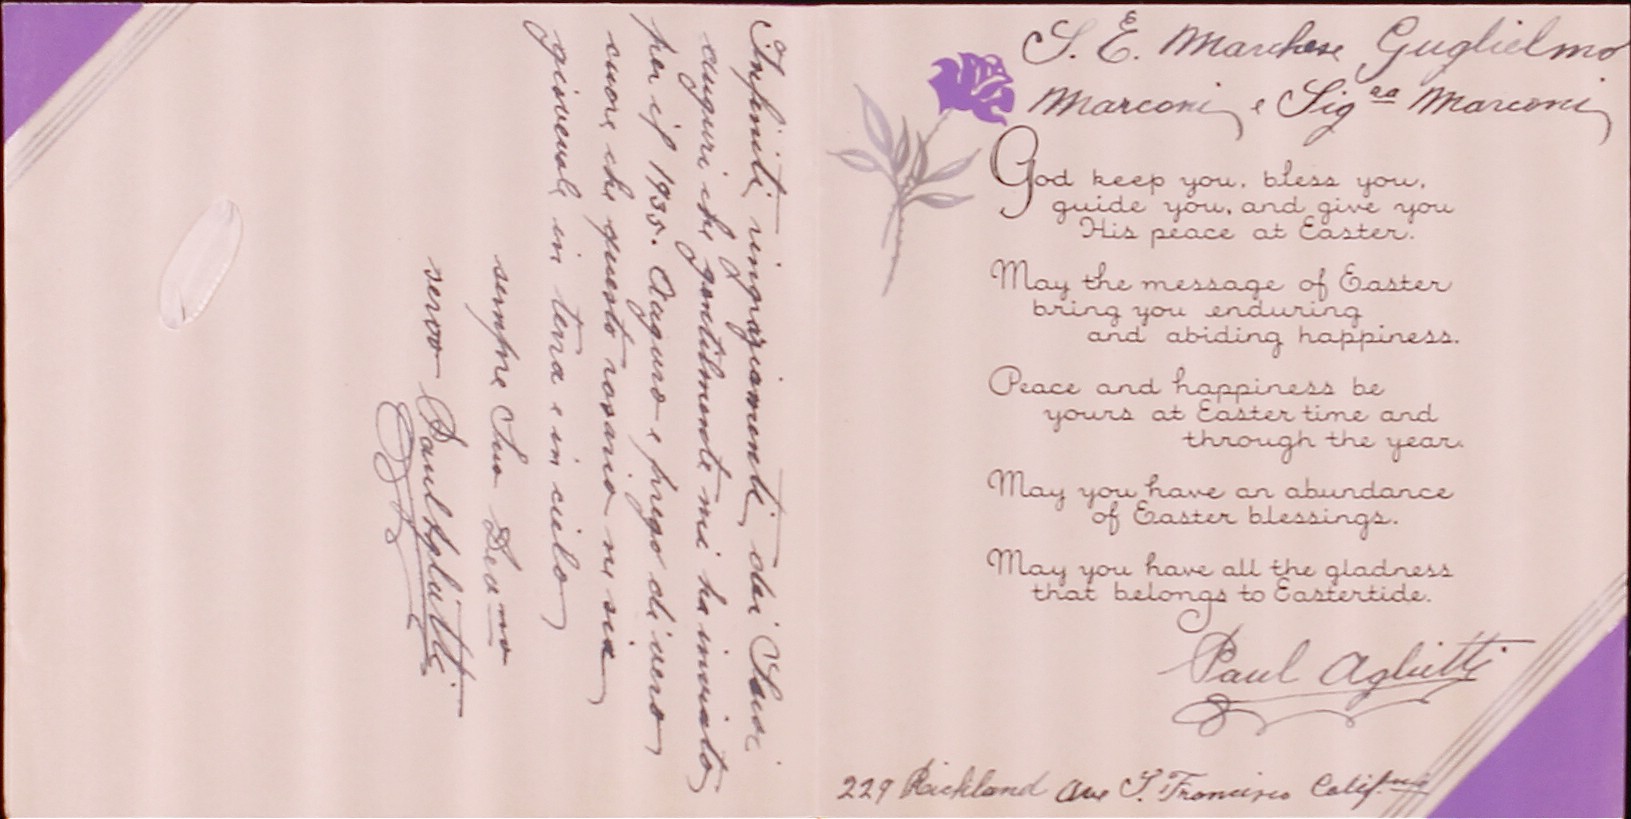 Infiniti ringraziamenti dei Suoi
auguri che gentilmente mi ha inviato
per il 1935. Auguro e prego di vero
cuore che questo novario ne sia
giovevole in terra e in cielo
sempre Suo Dev mo
servo Paul Aglietti
S. E. Marchese Guglielmo
Marconi e Sig ra Marconi
God keep you, bless you,
guide you, and give you
His peace at Easter.
May the message of Easter
bring you enduring
and abiding happiness.
Peace and happiness be
yours at Easter time and
through the year.
May you have an abundance
of Easter blessings.
May you have all the gladness
that belongs to Eastertide.
Paul Aglietti
229 Richland Ave S. Francisco Calif.